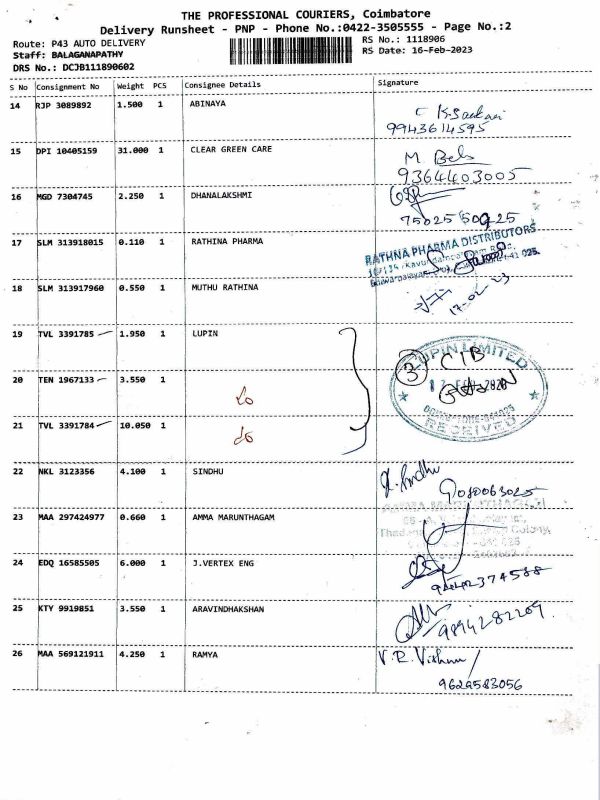 THE PROFESSIONAL COURIERS, Coimbatore
Delivery Runsheet - PNP - Phone No.:0422-3505555 - Page No.:2
Route: P43 AUTO DELIVERY
RS No.: 1118906
Staff: BALAGANAPATHY
RS Date: 16-Feb-2023
DRS No.: DCJB111890602
S No Consignment No Weight PCS Consignee Details Signature
14 RJP 3089892 1.500 1 ABINAYA
9943614595
15 DPI 10405159 31.000 1 CLEAR GREEN CARE M.
9364403005
16 MGD 7304745 2.250 1 DHANALAKSHMI
75025 50925
17 SLM 313918015 0.110 1 RATHINA PHARMA RATHNA PHARMA DISTRIBUTORS
18 SLM 313917960 0.550 1 MUTHU RATHINA
17-02-23
19 TVL 3391785 1.950 1 LUPIN LUPIN LIMITED
3 CIB
20 TEN 1967133 3.550 1 do
21 TVL 3391784 10.050 1 do RECEIVED
22 NKL 3123356 4.100 1 SINDHU
23 MAA 297424977 0.660 1 AMMA MARUNTHAGAM
24 EDQ 16585505 6.000 1 J.VERTEX ENG
25 KTY 9919851 3.550 1 ARAVINDHAKSHAN
9894282209
26 MAA 569121911 4.250 1 RAMYA V.R. Vishnu
9629583056